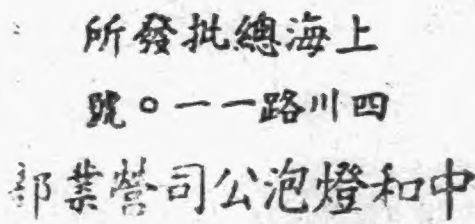 上海總批發所
四川路一一〇號
中和燈泡公司營業部